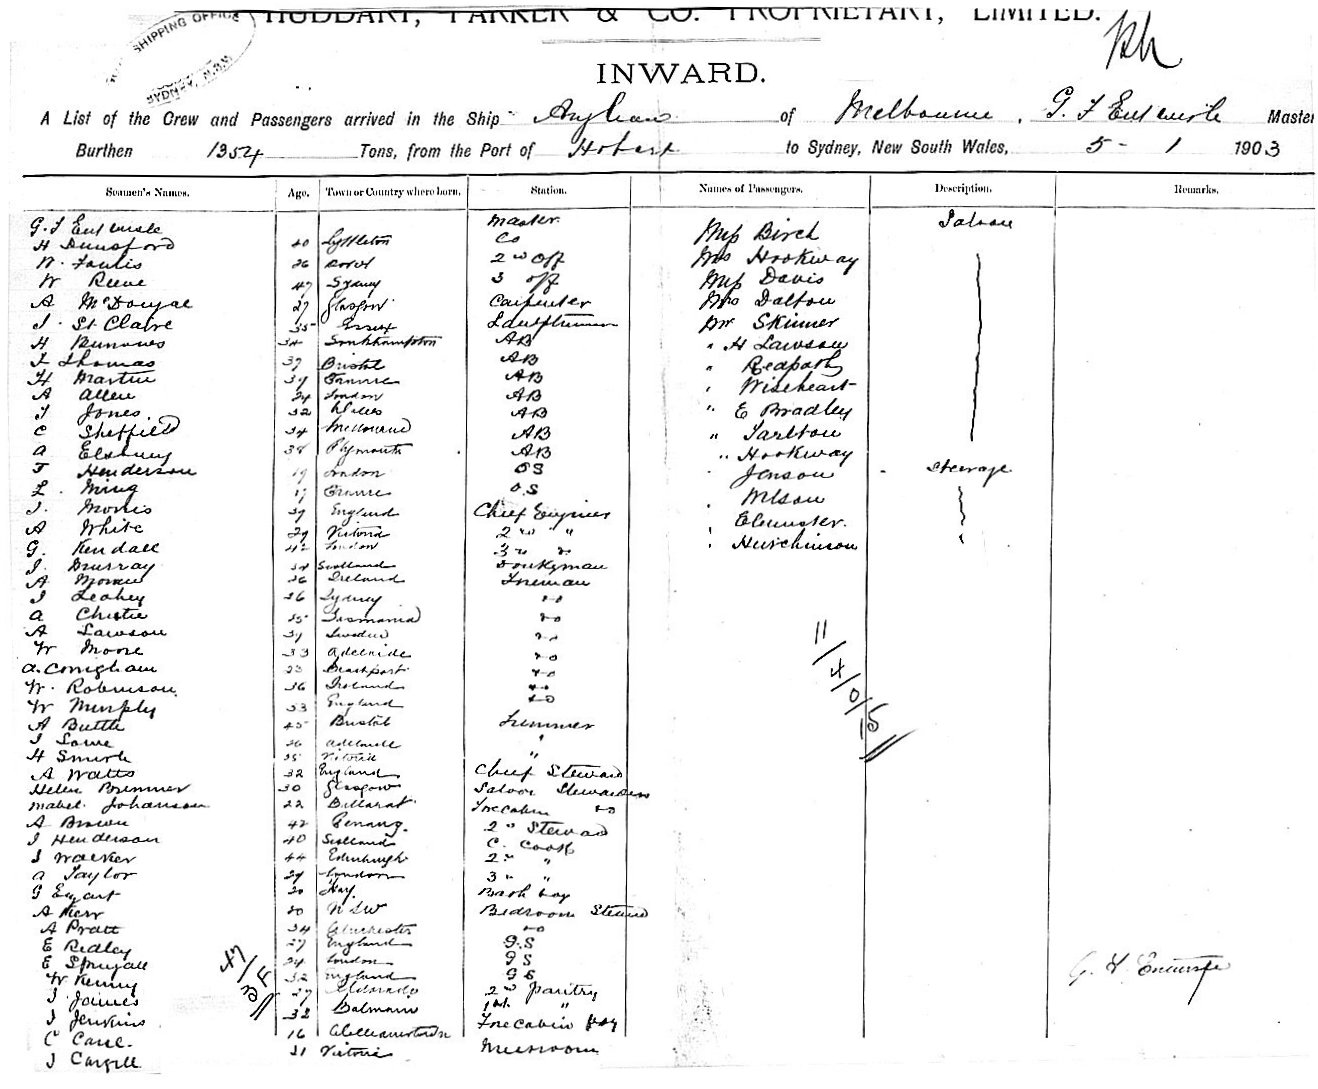 HUDDART, PARKER & CO. PROPRIETARY, LIMITED.
SHIPPING OFFICE
SYDNEY, N.S.W.
INWARD.
A List of the Crew and Passengers arrived in the Ship Anglian of Melbourne, G. F Entwisle Master
Burthen 1354 Tons, from the Port of Hobart to Sydney, New South Wales, 5 - 1 1903
Seamen's Names. Age. Town or Country where born. Station. Names of Passengers. Description. Remarks.
G. F Entwisle Master Miss Birch Saloon
H Dunsford 40 Lyttleton Co Mrs Hookway
26 2nd Off Miss Davis
W Reeve 47 Sydney 3 Off Mrs Dalton
A McDougal 27 Glasgow Carpenter Mr Skinner
J. St Claire 35 Essex Lamptrimmer " H Lawson
H 34 Southhampton AB " Redpath
Thomas 37 Bristol AB " Wiseheart
H Martin 39 AB " E Bradley
A Allen 24 London AB " Tarlton
Jones 32 Wales AB " Hookway
C Sheffield 34 Melbourne AB Jenson Steerage
A 38 Plymouth AB Wilson
Henderson 19 London OS
L. Ming 19 O.S " Hutchinson
J. Morris 39 England Chief Engineer
A White 29 Victoria 2nd "
G. Kendall 42 London 3rd "
J. Murray 38 Scotland Donkyman
A 36 Ireland Fireman
J Leahey 26 Sydney do
A Christie 35 Tasmania do
A Lawson 39 Sweden do
W Moore 33 Adelaide do
A. Conigham 23 Beachport do
W. Robinson 36 Ireland do
W Murphy 53 England do
A Buttle 45 Bristol Trimmer
J Lowe 26 Adelaide "
H Smith 25 Victoria "
A Watts 32 England Chief Steward
Helen Brimmer 30 Glasgow Saloon Stewardess
Mabel Johanson 22 Ballarat Forecabin do
A Brown 42 Penang 2nd Steward
J Henderson 40 Scotland C. Cook
J Walker 44 Edinburgh 2nd "
A Taylor 29 London 3rd "
G 20 Hay
A Kerr 20 NSW Bedroom Steward
A Pratt 34 Gloucester do
E Redley 27 England G.S
E 24 London GS
W Kenny 32 England GS
J 27 2nd Pantry
J Jenkins 32 Balmain 1st "
C Carse 16 Williamstown Forecabin Boy
J Cargill 21 Victoria Messroom
11/4/0/15
G. F. Entwisle